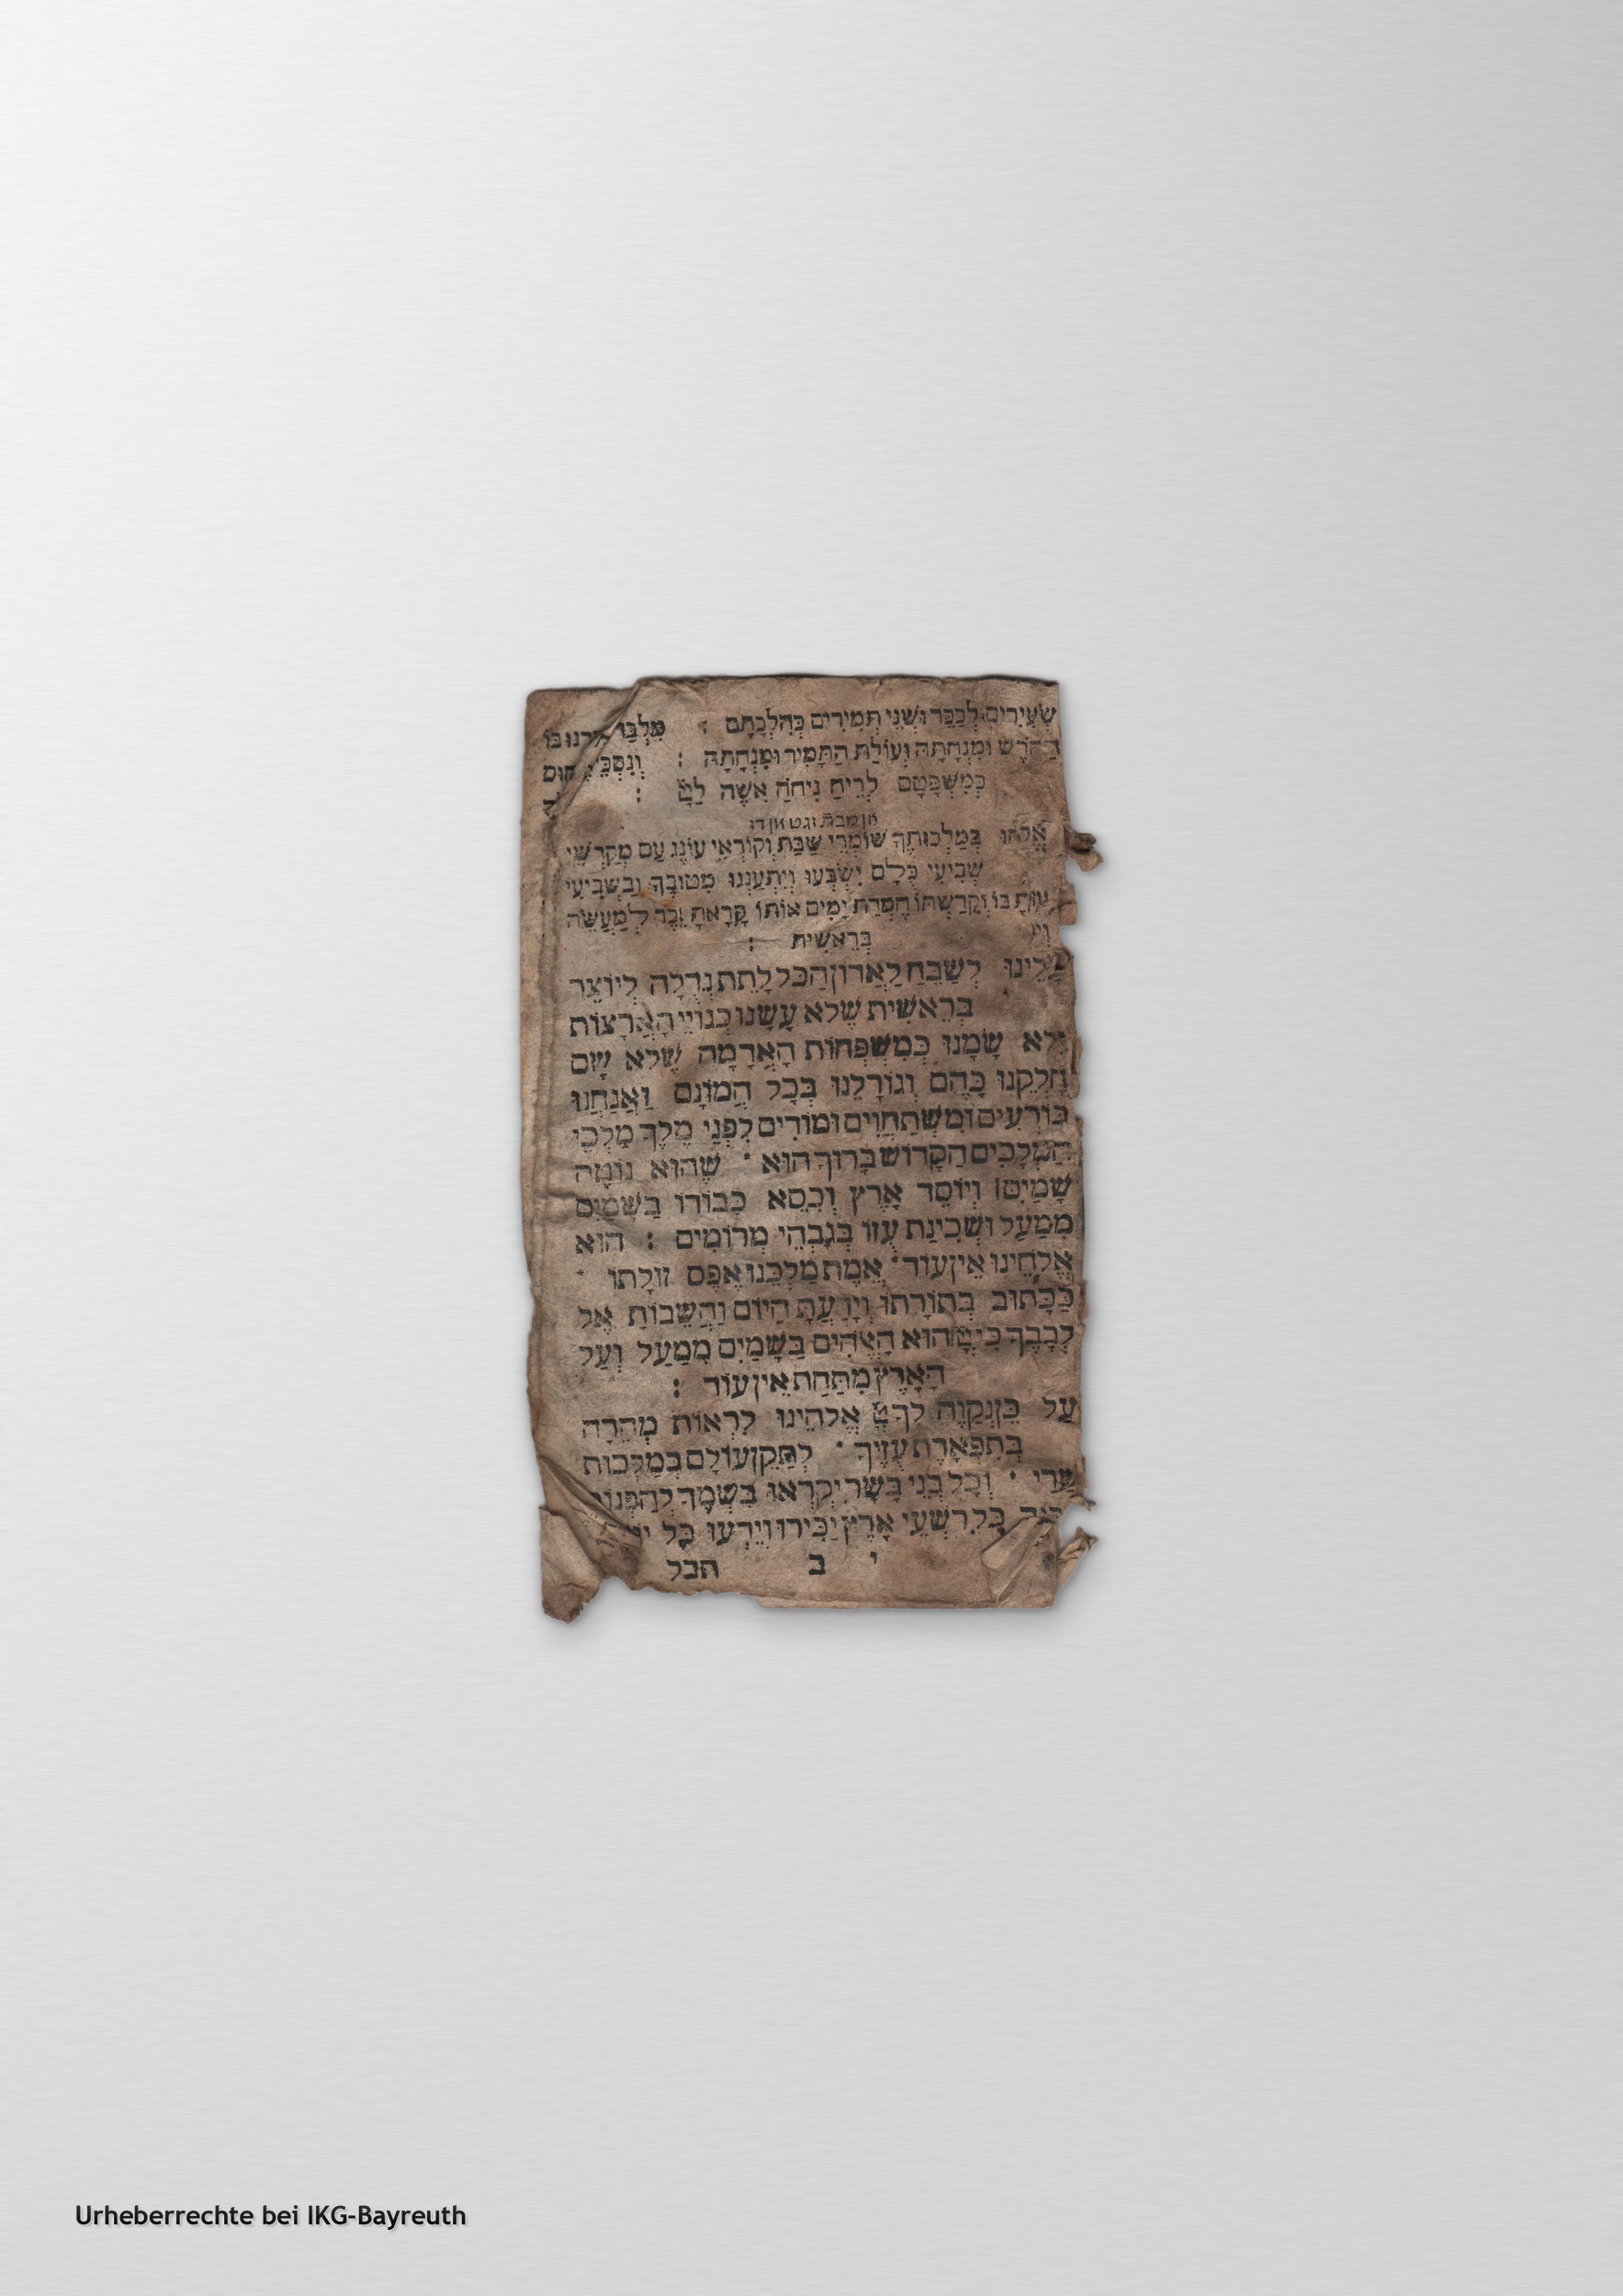 שְׂעִירִים לְכַפֵּר וּשְׁנֵי תְמִידִים כְּהִלְכָתָם : מִלְּבַד
הַחֹדֶשׁ וּמִנְחָתָהּ וְעוֹלַת הַתָּמִיד וּמִנְחָתָהּ : וְנִסְכֵּי
כְּמִשְׁפָּטָם לְרֵיחַ נִיחֹחַ אִשֶּׁה לַיְיָ :
שבת זגט מן
בְּמַלְכוּתְךָ שׁוֹמְרֵי שַׁבָּת וְקוֹרְאֵי עוֹנֶג עַם מְקַדְּשֵׁי
שְׁבִיעִי כֻּלָּם יִשְׂבְּעוּ וְיִתְעַנְּגוּ מִטּוּבֶךָ וּבַשְּׁבִיעִי
בּוֹ וְקִדַּשְׁתּוֹ חֶמְדַּת יָמִים אוֹתוֹ קָרָאתָ זֵכֶר לְמַעֲשֵׂה
בְרֵאשִׁית :
עָלֵינוּ לְשַׁבֵּחַ לַאֲדוֹן הַכֹּל לָתֵת גְּדֻלָּה לְיוֹצֵר
בְּרֵאשִׁית שֶׁלֹּא עָשָׂנוּ כְּגוֹיֵי הָאֲרָצוֹת
וְלֹא שָׂמָנוּ כְּמִשְׁפְּחוֹת הָאֲדָמָה שֶׁלֹּא שָׂם
חֶלְקֵנוּ כָּהֶם וְגוֹרָלֵנוּ בְּכָל הֲמוֹנָם וַאֲנַחְנוּ
כּוֹרְעִים וּמִשְׁתַּחֲוִים וּמוֹדִים לִפְנֵי מֶלֶךְ מַלְכֵי
הַמְּלָכִים הַקָּדוֹשׁ בָּרוּךְ הוּא · שֶׁהוּא נוֹטֶה
שָׁמַיִם וְיוֹסֵד אָרֶץ וְכִסֵּא כְבוֹדוֹ בַּשָּׁמַיִם
מִמַּעַל וּשְׁכִינַת עֻזּוֹ בְּגָבְהֵי מְרוֹמִים : הוּא
אֱלֹהֵינוּ אֵין עוֹד · אֱמֶת מַלְכֵּנוּ אֶפֶס זוּלָתוֹ ·
כַּכָּתוּב בְּתוֹרָתוֹ וְיָדַעְתָּ הַיּוֹם וַהֲשֵׁבוֹתָ אֶל
לְבָבֶךָ כִּי יְיָ הוּא הָאֱלֹהִים בַּשָּׁמַיִם מִמַּעַל וְעַל
הָאָרֶץ מִתַּחַת אֵין עוֹד :
עַל כֵּן נְקַוֶּה לְךָ יְיָ אֱלֹהֵינוּ לִרְאוֹת מְהֵרָה
בְּתִפְאֶרֶת עֻזֶּךָ · לְתַקֵּן עוֹלָם בְּמַלְכוּת
שַׁדַּי · וְכָל בְּנֵי בָשָׂר יִקְרְאוּ בִּשְׁמֶךָ לְהַפְנוֹת
כָּל רִשְׁעֵי אָרֶץ יַכִּירוּ וְיֵדְעוּ כָּל
י ב תבל
Urheberrechte bei IKG-Bayreuth